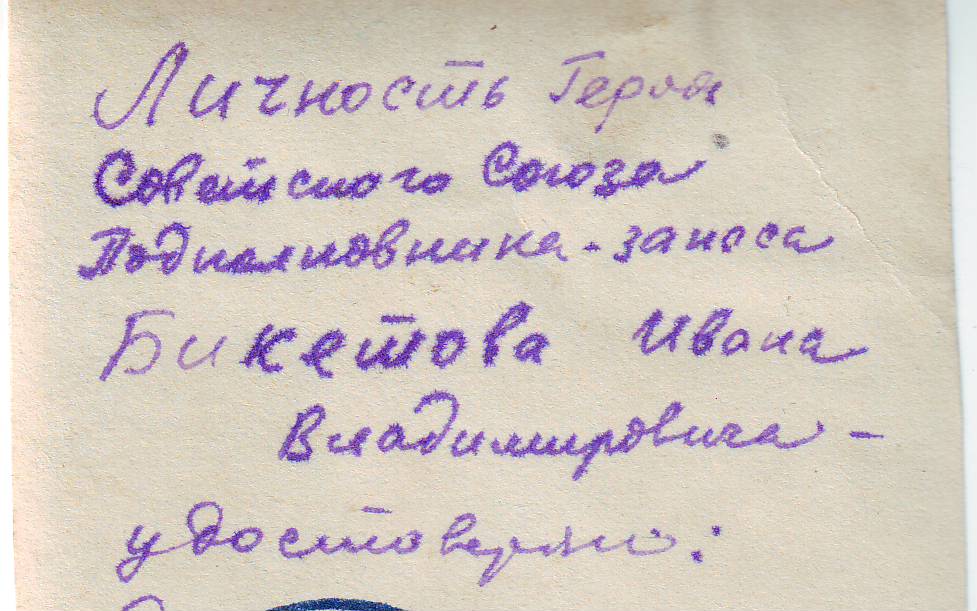 Личность Героя
Советского Союза
Подполковника-запаса
Бикетова Ивана
Владимировича -
удостоверяю: